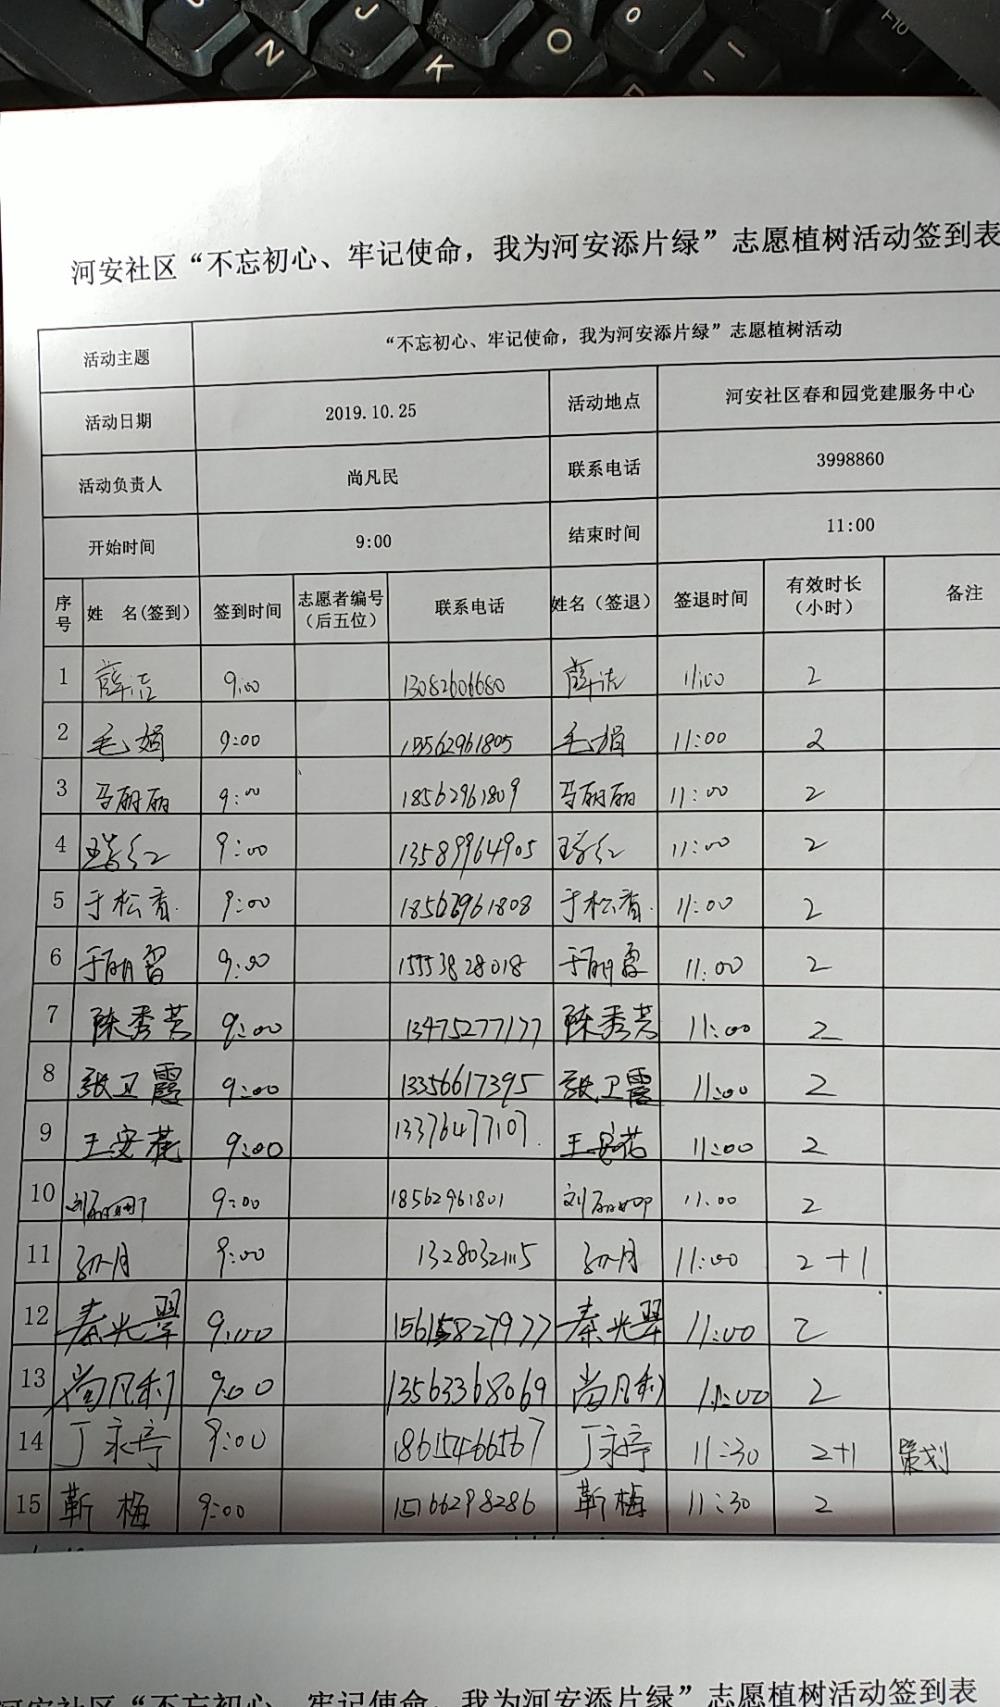 河安社区“不忘初心、牢记使命，我为河安添片绿”志愿植树活动签到表
活动主题 “不忘初心、牢记使命，我为河安添片绿”志愿植树活动
活动日期 2019.10.25 活动地点 河安社区春和园党建服务中心
活动负责人 尚凡民 联系电话 3998860
开始时间 9:00 结束时间 11:00
序号 姓 名(签到) 签到时间 志愿者编号（后五位） 联系电话 姓名（签退） 签退时间 有效时长（小时） 备注
1 薛洁 9:00 13082606680 薛洁 11:00 2
2 毛娟 9:00 15562961805 毛娟 11:00 2
3 马丽丽 9:00 18562961809 马丽丽 11:00 2
4 9:00 13589964905 11:00 2
5 于松香 9:00 18562961808 于松香 11:00 2
6 于丽 9:00 15553828018 于丽 11:00 2
7 陈秀芳 9:00 13475277177 陈秀芳 11:00 2
8 张卫霞 9:00 13356617395 张卫霞 11:00 2
9 王安花 9:00 13376477107 王安花 11:00 2
10 刘丽娜 9:00 18562961801 刘丽娜 11:00 2
11 孙月 9:00 13280321115 孙月 11:00 2+1
12 秦光翠 9:00 15615827977 秦光翠 11:00 2
13 尚凡利 9:00 13563368069 尚凡利 11:00 2
14 丁永亭 9:00 18615466567 丁永亭 11:30 2+1 策划
15 靳梅 9:00 15166298286 靳梅 11:30 2
河安社区“不忘初心、牢记使命，我为河安添片绿”志愿植树活动签到表